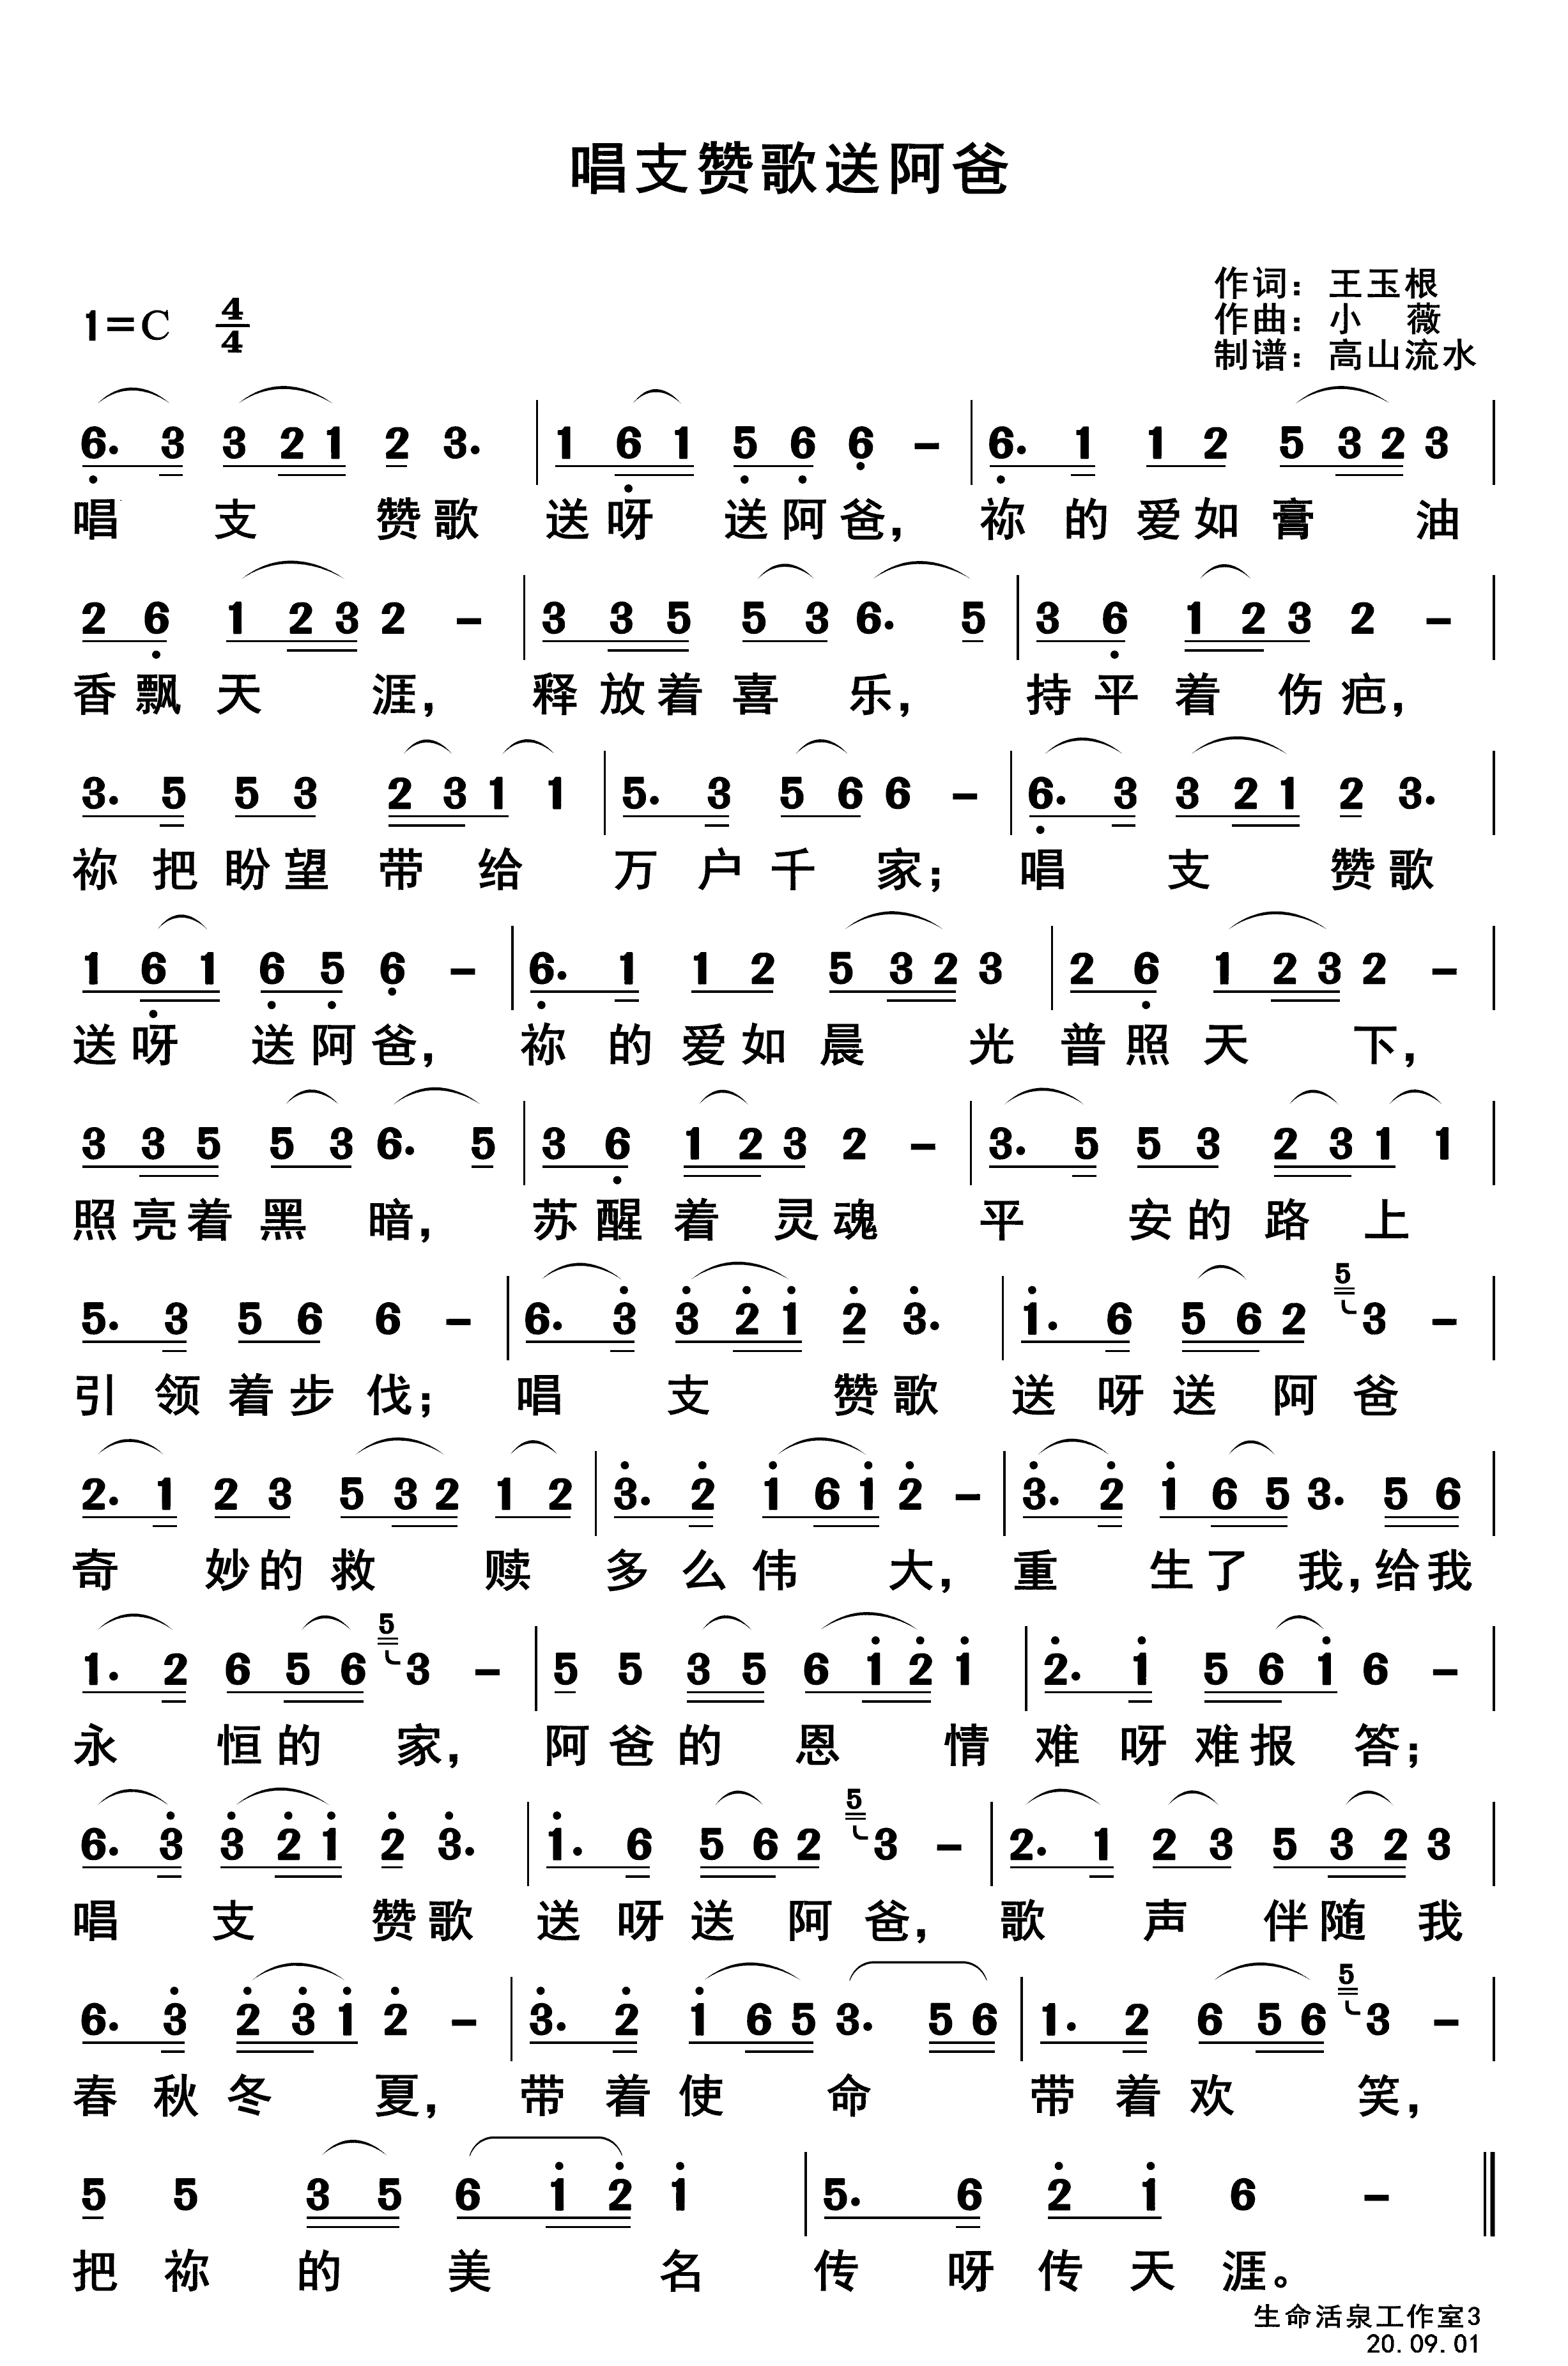 唱支赞歌送阿爸
作词：王玉根
作曲：小 薇
制谱：高山流水
1=C 4/4
6. 3 3 2 1 2 3. | 1 6 1 5 6 6 – | 6. 1 1 2 5 3 2 3 |
唱 支 赞 歌 送 呀 送 阿 爸， 祢 的 爱 如 膏 油
2 6 1 2 3 2 – | 3 3 5 5 3 6. 5 | 3 6 1 2 3 2 – |
香 飘 天 涯， 释 放 着 喜 乐， 持 平 着 伤 疤，
3. 5 5 3 2 3 1 1 | 5. 3 5 6 6 – | 6. 3 3 2 1 2 3. |
祢 把 盼 望 带 给 万 户 千 家； 唱 支 赞 歌
1 6 1 6 5 6 – | 6. 1 1 2 5 3 2 3 | 2 6 1 2 3 2 – |
送 呀 送 阿 爸， 祢 的 爱 如 晨 光 普 照 天 下，
3 3 5 5 3 6. 5 | 3 6 1 2 3 2 – | 3. 5 5 3 2 3 1 1 |
照 亮 着 黑 暗， 苏 醒 着 灵 魂 平 安 的 路 上
5. 3 5 6 6 – | 6. 3 3 2 1 2 3. | 1. 6 5 6 2 5 3 – |
引 领 着 步 伐； 唱 支 赞 歌 送 呀 送 阿 爸
2. 1 2 3 5 3 2 1 2 | 3. 2 1 6 1 2 – | 3. 2 1 6 5 3. 5 6 |
奇 妙 的 救 赎 多 么 伟 大， 重 生 了 我， 给 我
1. 2 6 5 6 5 3 – | 5 5 3 5 6 1 2 1 | 2. 1 5 6 1 6 – |
永 恒 的 家， 阿 爸 的 恩 情 难 呀 难 报 答；
6. 3 3 2 1 2 3. | 1. 6 5 6 2 5 3 – | 2. 1 2 3 5 3 2 3 |
唱 支 赞 歌 送 呀 送 阿 爸， 歌 声 伴 随 我
6. 3 2 3 1 2 – | 3. 2 1 6 5 3. 5 6 | 1. 2 6 5 6 5 3 – |
春 秋 冬 夏， 带 着 使 命 带 着 欢 笑，
5 5 3 5 6 1 2 1 | 5. 6 2 1 6 – ‖
把 祢 的 美 名 传 呀 传 天 涯。
生命活泉工作室3
20.09.01